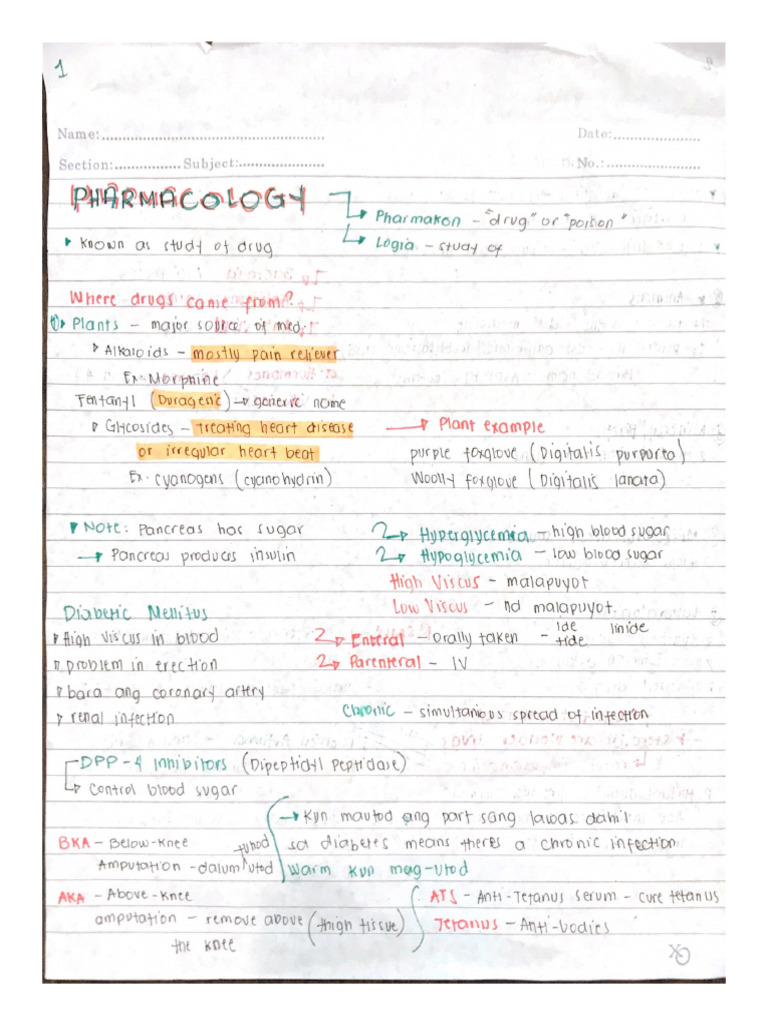 1
Name:
Date:
Section: Subject:
No.:
PHARMACOLOGY
Pharmakon - "drug" or "poison"
Logia - study of
known as study of drug
Where drugs came from?
1 Plants - major source of med.
Alkaloids - mostly pain reliever
Ex. Morphine
Fentanyl (Duragesic) → generic name
Glycosides - treating heart disease
or irregular heart beat
Ex. cyanogens (cyanohydrin)
→ Plant example
purple foxglove (Digitalis purpurea)
Woolly foxglove (Digitalis lanata)
Note: Pancreas has sugar
→ Pancreas produces insulin
Hyperglycemia - high blood sugar
Hypoglycemia - low blood sugar
High Viscus - malapuyot
Low Viscus - nd malapuyot
Diabetic Mellitus
High Viscus in blood
problem in erection
bara ang coronary artery
renal infection
Enteral - orally taken - ide
tide
linide
Parenteral - IV
Chronic - simultanious spread of infection
DPP-4 Inhibitors (Dipeptidyl Peptidase)
Control blood sugar
BKA - Below-Knee
Amputation - dalum utod
tuhod
→ Kun mautod ang part sang lawas dahil
sa diabetes means theres a chronic infection
Warm kun mag-utod
AKA - Above-Knee
amputation - remove above
the knee
(thigh tissue)
ATS - Anti-Tetanus serum - cure tetanus
Tetanus - Anti-bodies